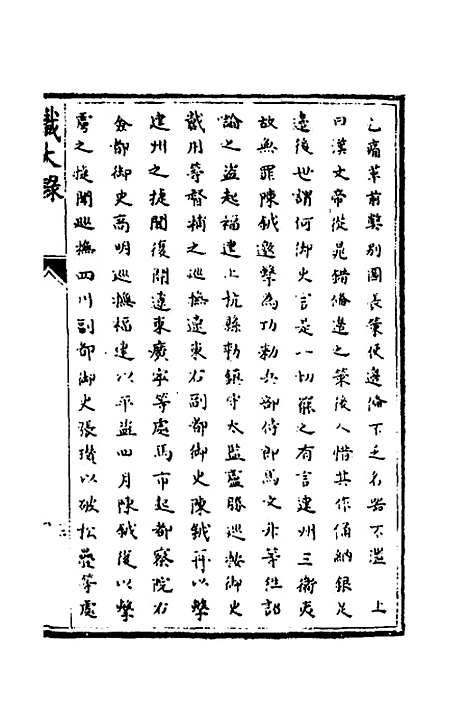 乞痛革前弊別圖長策使邊備不乏名器不濫 上
曰漢文帝從晁錯備邊之策後人惜其作俑納銀足
邊後世謂何御史言是一切罷之有言建州三衛夷
故無罪陳鉞邀擊為功勅兵部侍郎馬文升等往訪
論之盜起福建上杭縣勅鎮守太監盧勝巡按御史
戴用等督捕之巡撫遼東右副都御史陳鉞再以擊
建州之捷聞復開遼東廣寧等處馬市起都察院右
僉都御史高明巡撫福建以平盜四月陳鉞復以擊
虜之捷聞巡撫四川副都御史張瓚以破松疊等處
識大錄